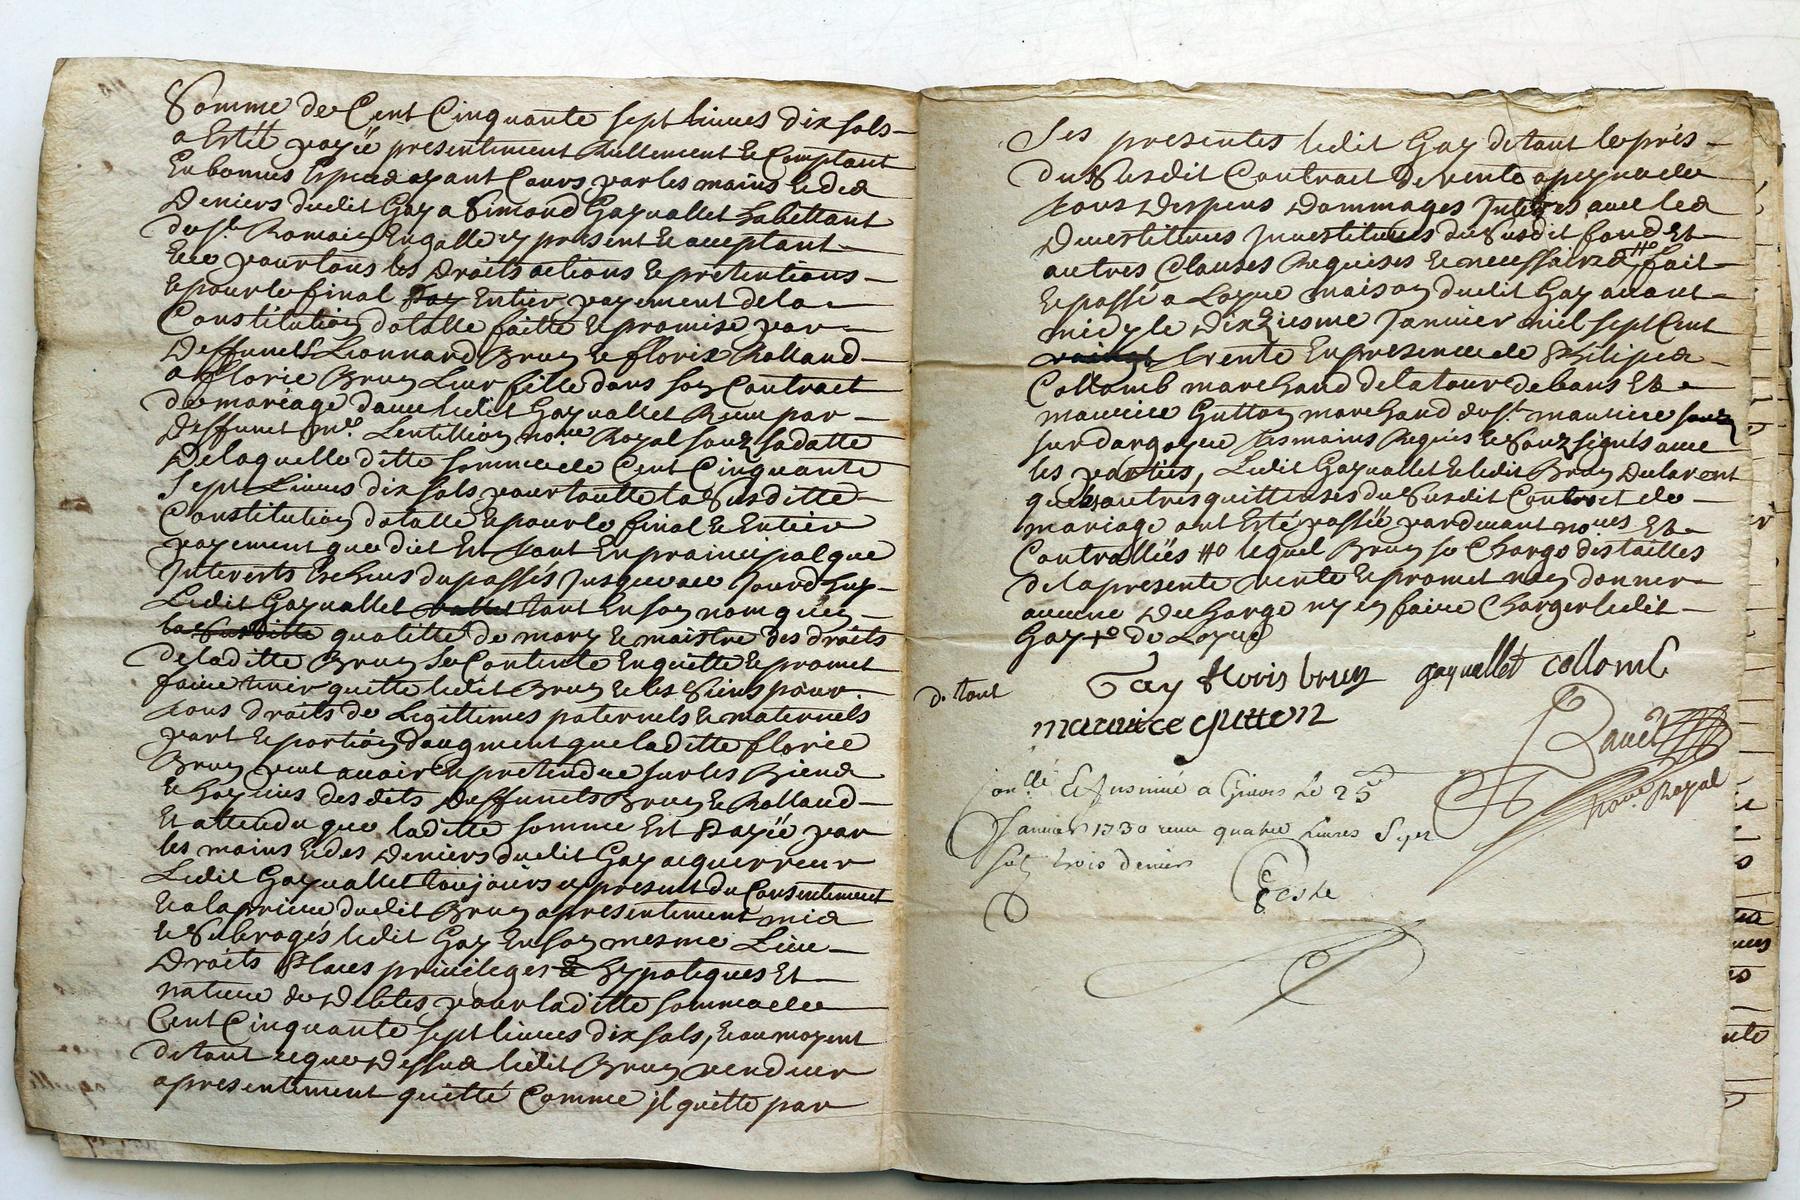 Somme de Cent Cinquante sept livres dix sols
a Esté payée presentement Reellement et Comptant
En bonnes Especes ayant Cours par les mains et des
Deniers dudit Gay a Simond Gayvallet habittant
de st Romain En galle cy present et acceptant
Et ce pour tous les Droits actions et pretentions
et pour le final Entier payement de la
Constitution dotalle faitte et promise par
Deffunts Leonnard Bruy et florie Rolland
a florie Bruy Leur fille dans son Contract
de mariage d'avec ledit Gayvallet Receu par
Deffunt me Lentillion no.re Royal souz sa datte
De laquelle ditte somme de Cent Cinquante
Sept Livres dix sols pour toutte la Susditte
Constitution dotalle et pour le final et Entier
payement que dict Est tant En principal que
Interests Escheus du passés jusques a ce jourd'huy
Ledit Gayvallet tant En son nom qu'en
quallitté de mary et maistre des droits
de laditte Bruy se Contente En quitte et promet
faire tenir quitte ledit Bruy et les Siens pour
tous droits de Legittimes paternels et maternels
part et portion d'augment que laditte florie
Bruy peut avoir et pretendre sur les Biens
et hoyries des dits Deffunts Bruy et Rolland
Et attendu que laditte somme Est Payée par
les mains et des Deniers dudit Gay acquerreur
Ledit Gayvallet toujours cy present du Consentement
et a la priere dudit Bruy a presentement mis
et Subrogés ledit Gay En son mesme Lieu
Droits Places privileges et hypoteques Et
nature de Debtes pour laditte somme de
Cent Cinquante sept livres dix sols, et au moyent
de tout ce que Dessus ledit Bruy vendeur
a presentement quitté Comme jl quitte par
Ses presentes ledit Gay de tout le pris
du Susdit Contract de vente a peyne de
tous Despens Dommages Interes avec les
Devestitures Investitures du Susdit fond Et
autres Clauses Requises et necessaires #° fait
et passé a Loyre maison dudit Gay avant
midy le Dixiesme Janvier mil sept Cent
trente En presence de Philipes
Collomb marchand de la tour de bans Et
maurice Gutton marchand de st maurice
sur dargoyre tesmoins Requis et Souz signés avec
les parties, Ledit Gayvallet et ledit Bruy Declarent
que autres quittenses du Susdit Contract de
mariage ont Esté passée pardevant no.res Et
Controllées #° lequel Bruy se Charge des tailles
de la presente vente et promet n'en donner
aucune Decharge ny en faire Charger ledit
Gay +° de Loyre
d. tout
Gay floris bruy gayvallet collomb
maurice gutton
Et Insinué a Givors Le 25e
Janvier 1730 receu quatre Livres Sept
sol trois deniers
no.re Royal